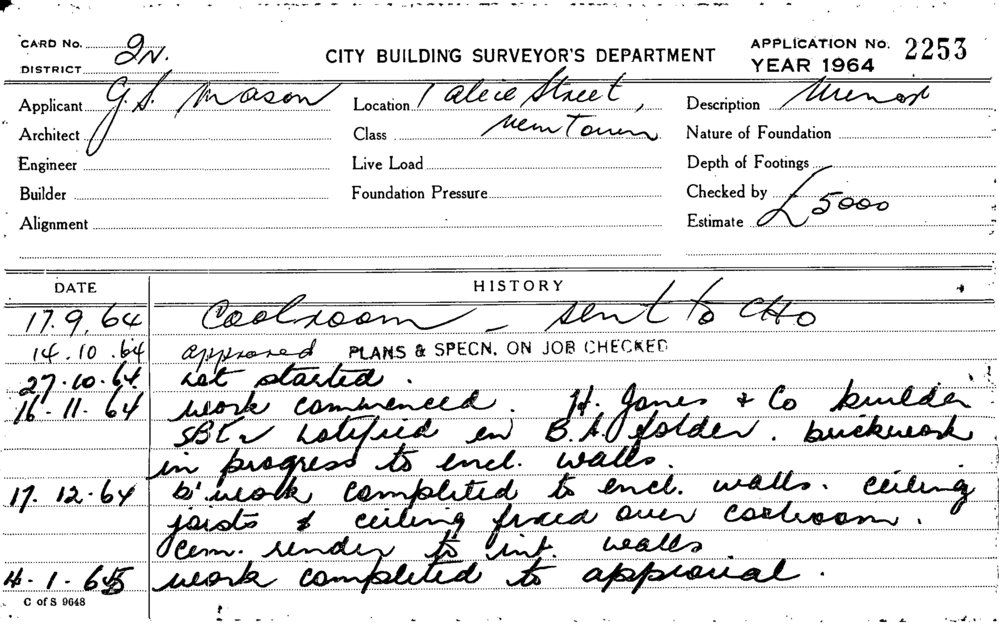 CARD No. 2N. CITY BUILDING SURVEYOR'S DEPARTMENT APPLICATION No. 2253
DISTRICT YEAR 1964
Applicant G. S. Mason Location 1 alice Street, Description Minor
Architect Class Newtown Nature of Foundation
Engineer Live Load Depth of Footings
Builder Foundation Pressure Checked by
Alignment Estimate £5000
DATE HISTORY
17.9.64 Coolroom – sent to CHO
14.10.64 approved PLANS & SPECN. ON JOB CHECKED
27.10.64 not started.
16.11.64 work commenced. H. Jones & Co builder
notified in B.A. folder. brickwork
in progress to encl. walls.
17.12.64 b'work completed to encl. walls. ceiling
joists & ceiling fixed over coolroom.
Cem. render to int. walls
4.1.65 work completed to approval.
C of S 9648